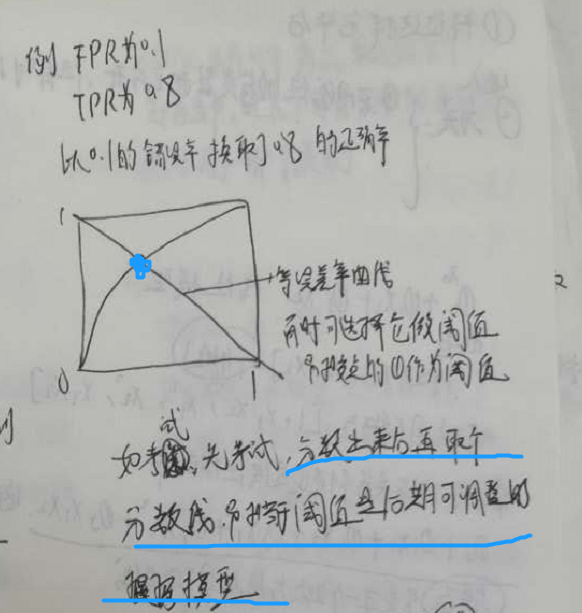 例 FPR为0.1
TPR为0.8
以0.1的错误率 换取了0.8 的正确率
1
等误差率曲线
有时可选择它做阈值
0
1
作为阈值
如考试,先考试,分数出来后再取个
分数线,相当于阈值是后期可调整的
根据模型